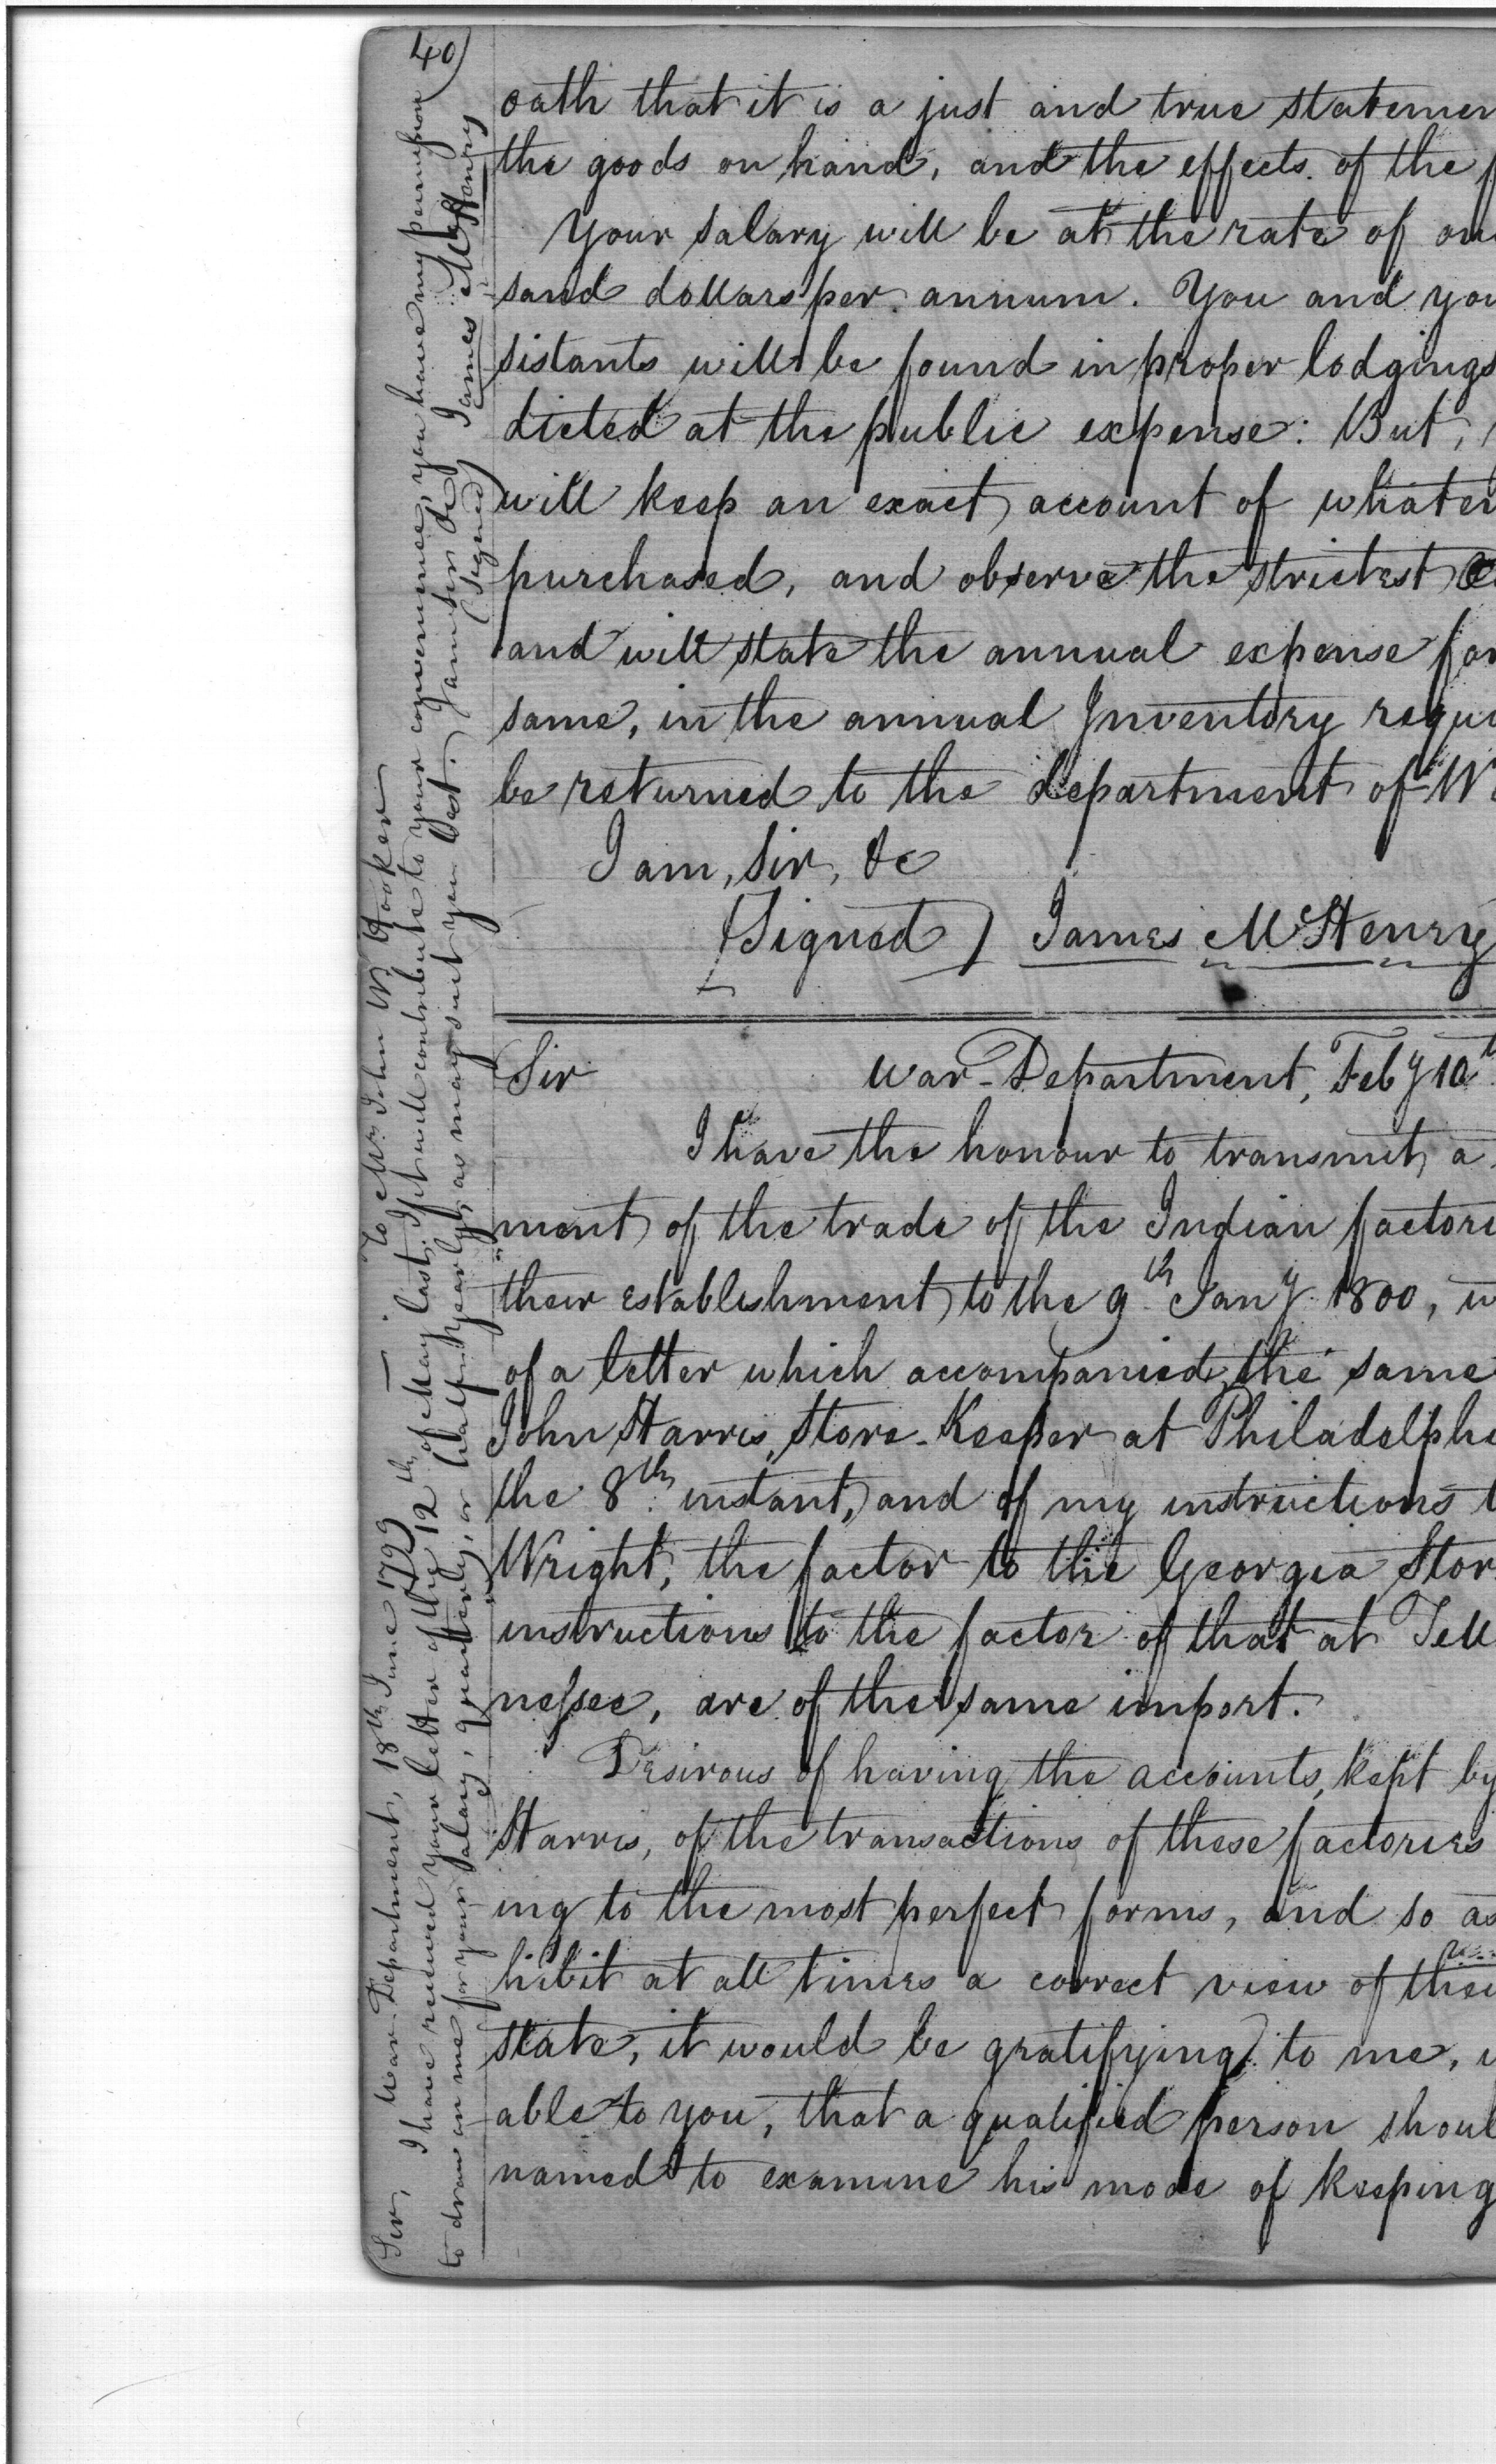 40)
oath that it is a just and true statemen
the goods on hand, and the effects of the f
Your salary will be at the rate of on
sand dollars per annum. You and you
sistants will be found in proper lodgings
dieted at the public expense: But,
will keep an exact account of whatev
purchased, and observe the strictest e
and will state the annual expense for
same, in the annual Inventory requi
be returned to the department of W
I am, Sir, &c
(Signed) James McHenry
Sir War-Department, Feby 10th
I have the honour to transmit a
ment of the trade of the Indian factori
their establishment to the 9th Jany 1800, w
of a letter which accompanied the same
John Harris, Store-Keeper at Philadelphi
the 8th instant, and of my instructions t
Wright, the factor to the Georgia Stor
instructions to the factor of that at Tell
nessee, are of the same import.
Desirous of having the accounts, kept by
Harris, of the transactions of these factories
ing to the most perfect forms, and so as
hibit at all times a correct view of thei
state, it would be gratifying to me, i
able to you, that a qualified person shoul
named to examine his mode of keeping
Sir, War-Department, 18th June 1799 To Mr. John W. Hooker
I have received your letter of the 12th of May last. If it will contribute to your convenience, you have my permission
to draw on me for your salary, quarterly, or half yearly, as may suit you best. I am Sir &c
(signed) James McHenry